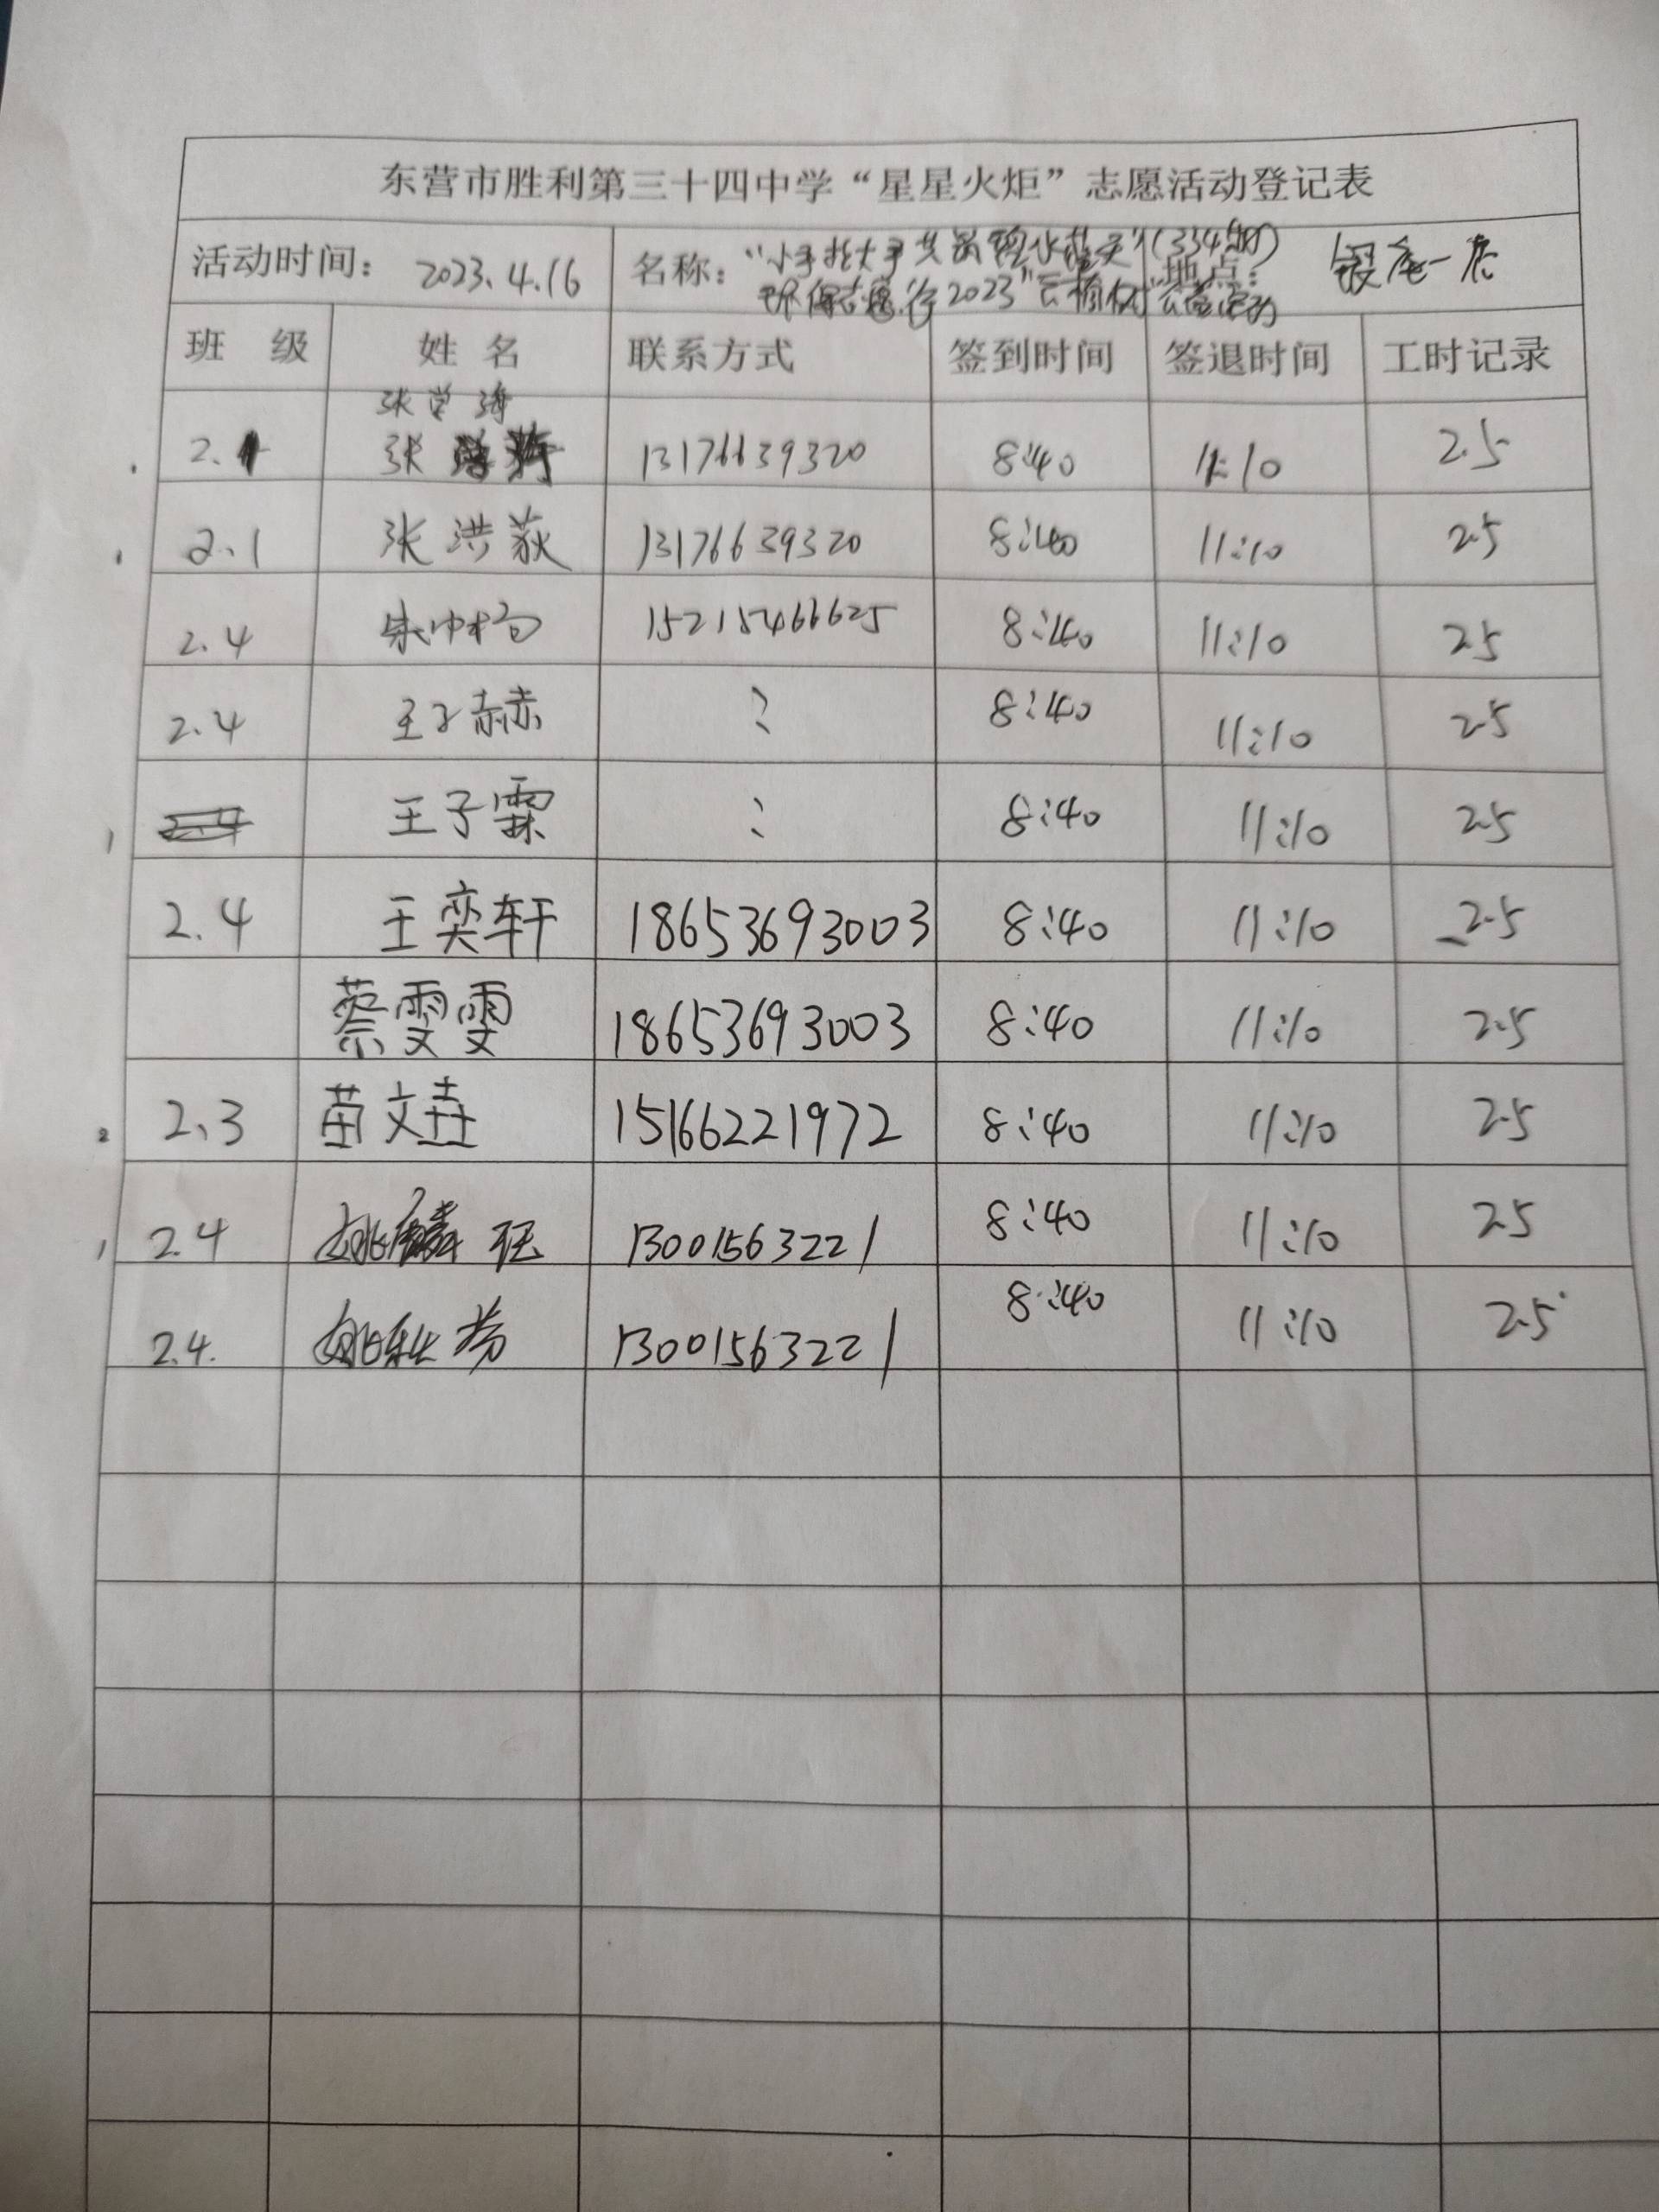 东营市胜利第三十四中学“星星火炬”志愿活动登记表
活动时间: 2023.4.16 名称: “小手拉大手 共 绿水蓝天”(334期) 地点:
环保志愿行2023”
班 级 姓 名 联系方式 签到时间 签退时间 工时记录
张
2.1 张 13176639320 8:40 11:10 2.5
2.1 张洪荻 13176639320 8:40 11:10 2.5
2.4 15215466625 8:40 11:10 2.5
2.4 王子赫 8:40 11:10 2.5
2.4 王子霖 8:40 11:10 2.5
2.4 王奕轩 18653693003 8:40 11:10 2.5
蔡雯雯 18653693003 8:40 11:10 2.5
2.3 苗文垚 15166221972 8:40 11:10 2.5
2.4 姚 13001563221 8:40 11:10 2.5
2.4. 姚 13001563221 8:40 11:10 2.5